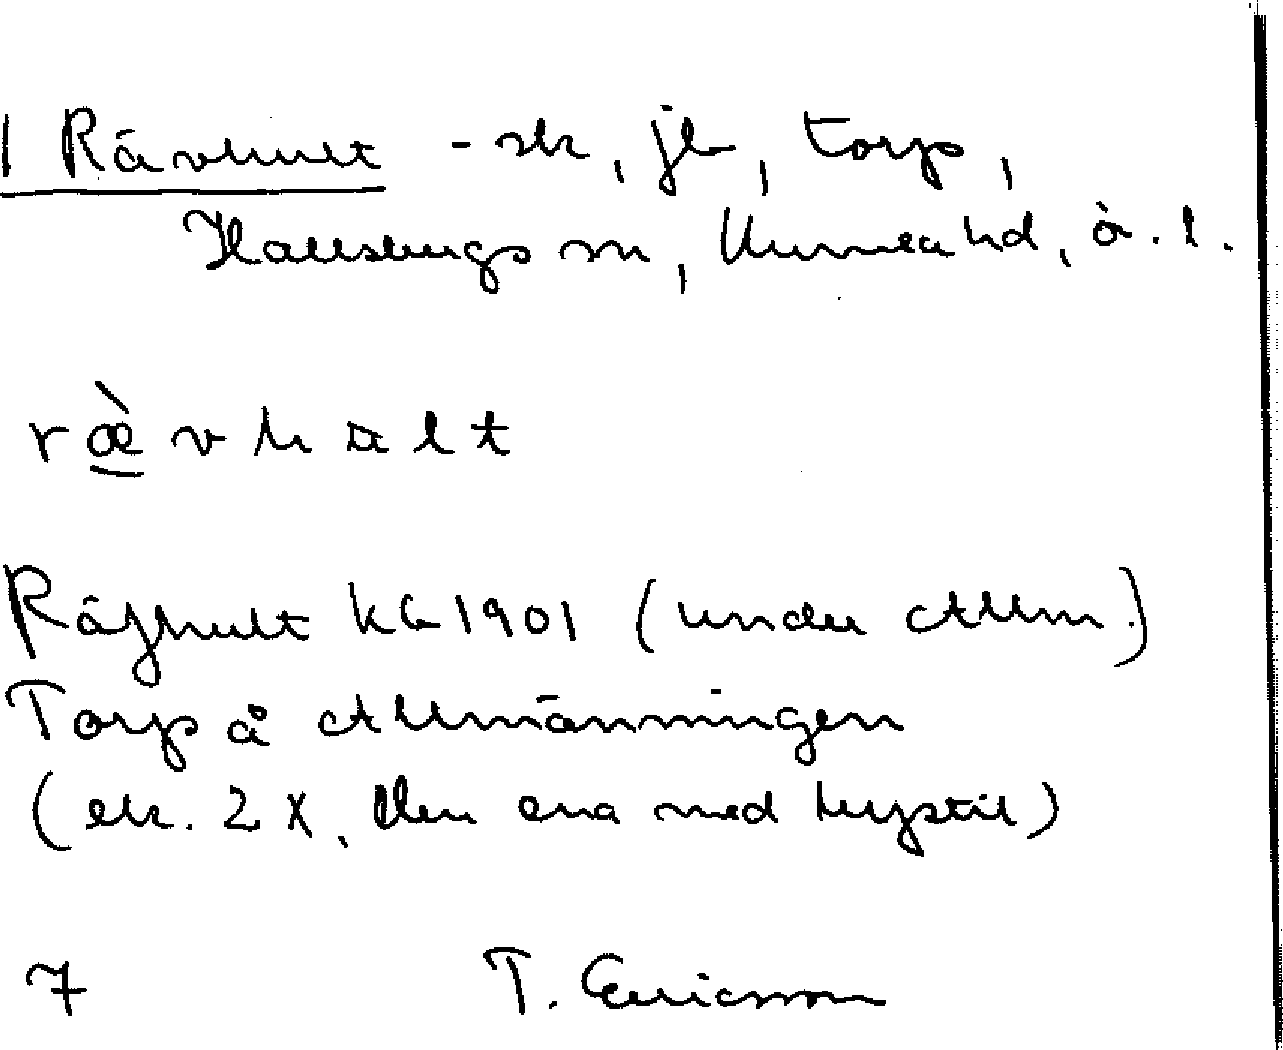 1 Rävhult -sk, jb, torp,
Hallsbergs sn, Kumla hd, ö. l.
ræ̀vhalt
Räfhult KG 1901 (under Allm.)
Torp å Allmänningen
(ek. 2 X, den ena med krystil)
7 T. Ericsson